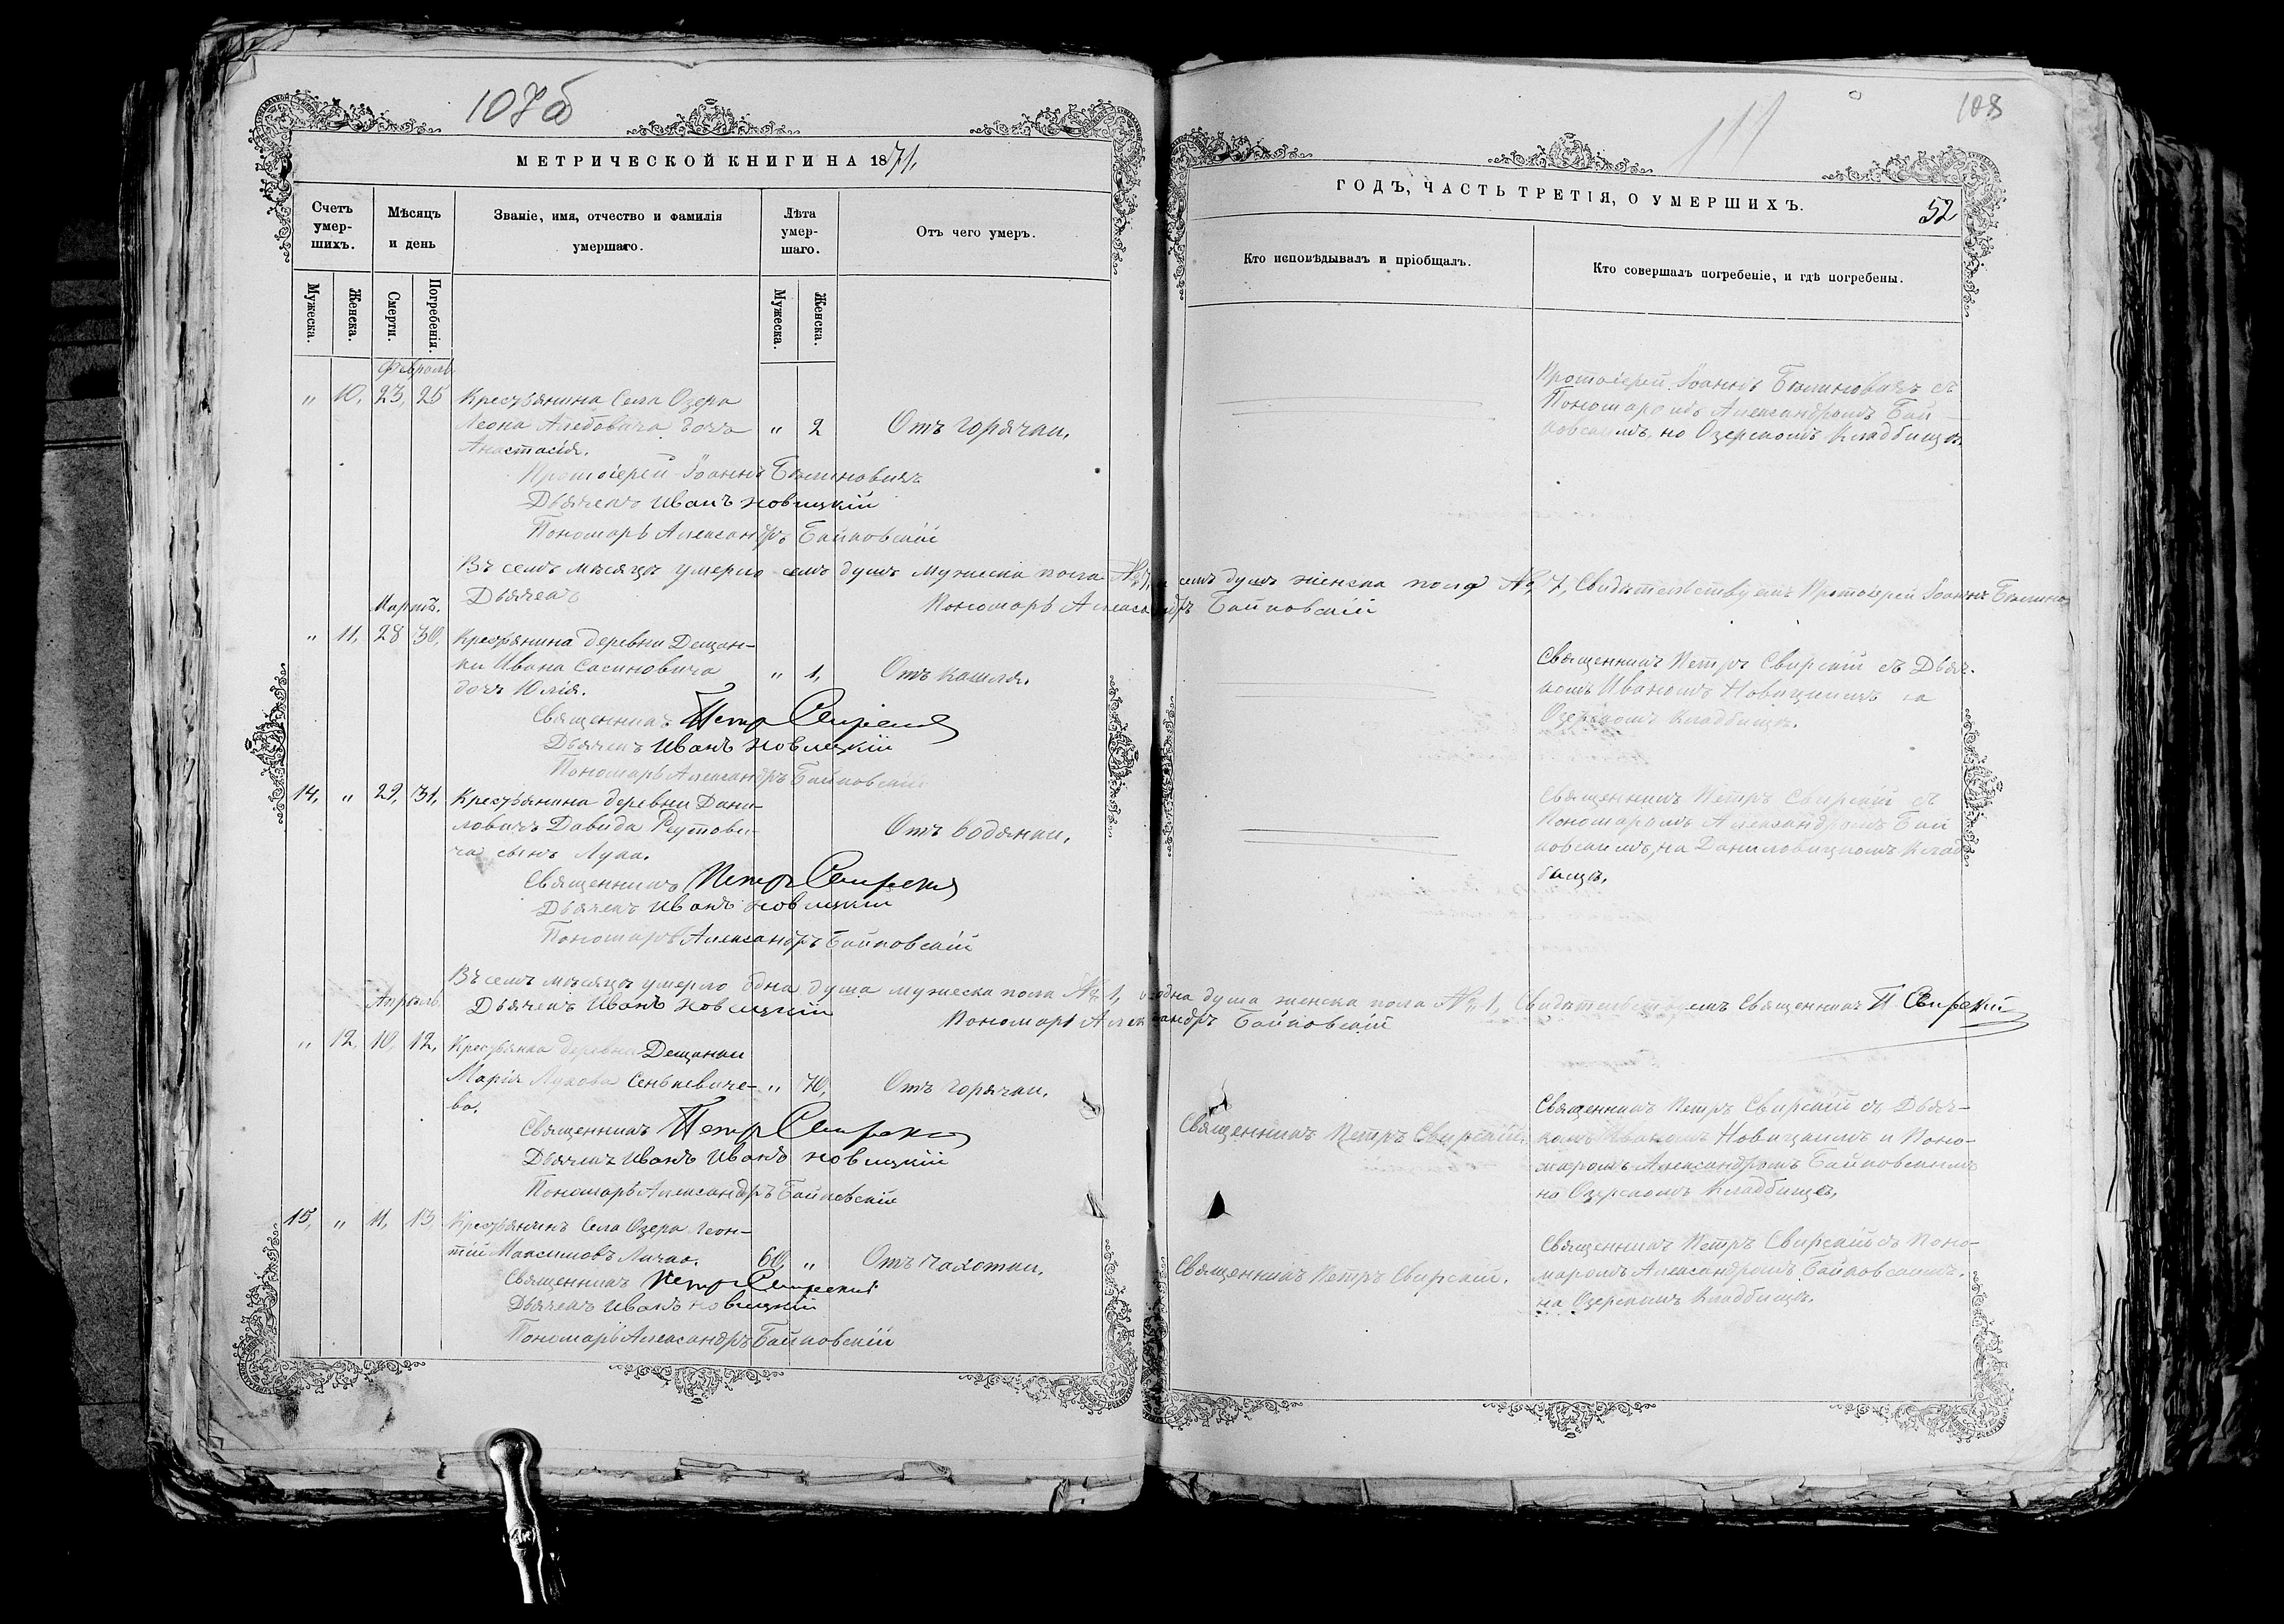 107б
МЕТРИЧЕСКОЙ КНИГИ НА 1871,
Счетъ умер-шихъ.
Мѣсяцъ и день
Званіе, имя, отчество и фамилія умершаго.
Лѣта умер-шаго.
Отъ чего умеръ.
Мужеска.
Женска.
Смерти.
Погребенія.
Мужеска.
Женска.
Февраль
„ 10, 23, 25 Крестьянина Села Озера
Леона дочъ „ 2 Отъ горячки,
Анастасія.
Протоіерей Іоаннъ
Дьячекъ Иванъ Новицкій
Пономарь Александръ Байковскій
Въ семъ мѣсяцѣ умерло семъ душъ мужеска пола № 7, и семъ душъ женска пола № 7, Свидѣтельствуемъ Протоіерей Іоаннъ
Дьячекъ Пономарь Александръ Байковскій
Мартъ.
„ 11, 28 30, Крестьянина деревни Дещан-
ки Ивана Сасиновича „ 1, Отъ кашля.
дочъ Юлія.
Священникъ Петръ Свирскій
Дьячекъ Иванъ Новицкій
Пономарь Александръ Байковскій
14, „ 29, 31, Крестьянина деревни Дани-
ловичъ Давида Реутови- Отъ водянки,
ча сынъ Лука.
Священникъ Петръ Свирскій
Дьячекъ Иванъ Новицкій
Пономарь Александръ Байковскій
Въ семъ мѣсяцѣ умерло одна душа мужеска пола № 1, и одна душа женска пола № 1, Свидѣтельствуемъ Священникъ П Свирскій
Апрѣль. Дьячекъ Иванъ Новицкій Пономарь Александръ Байковскій
„ 12, 10, 12, Крестьянка деревни Дещанки
Марія Лукова Сенькевиче- „ 70, Отъ горячки.
ва.
Священникъ Петръ Свирскій
Дьячекъ Иванъ Иванъ Новицкій
Пономарь Александръ Байковскій
15, „ 11, 13 Крестьянинъ Села Озера Леон-
тій Максимовъ 60, „ Отъ чахотки,
Священникъ Петръ Свирскій
Дьячекъ Иванъ Новицкій
Пономарь Александръ Байковскій
111
108
ГОДЪ, ЧАСТЬ ТРЕТІЯ, О УМЕРШИХЪ.
52
Кто исповѣдывалъ и пріобщалъ.
Кто совершалъ погребеніе, и гдѣ погребены.
Протоіерей Іоаннъ съ
Пономаромъ Александромъ Бай
ковскимъ, на Озерскомъ Кладбищѣ
Священникъ Петръ Свирскій съ Дьяч-
комъ Иваномъ Новицкимъ на
Озерскомъ Кладбищѣ.
Священникъ Петръ Свирскій съ
Пономаромъ Александромъ Бай
ковскимъ, на Даниловицкомъ Клад
бищѣ.
Священникъ Петръ Свирскій.
Священникъ Петръ Свирскій съ Дьяч-
комъ Иваномъ Новицкимъ и Поно-
маромъ Александромъ Байковскимъ
на Озерскомъ Кладбищѣ,
Священникъ Петръ Свирскій.
Священникъ Петръ Свирскій съ Поно-
маромъ Александромъ Байковскимъ,
на Озерскомъ Кладбищѣ.